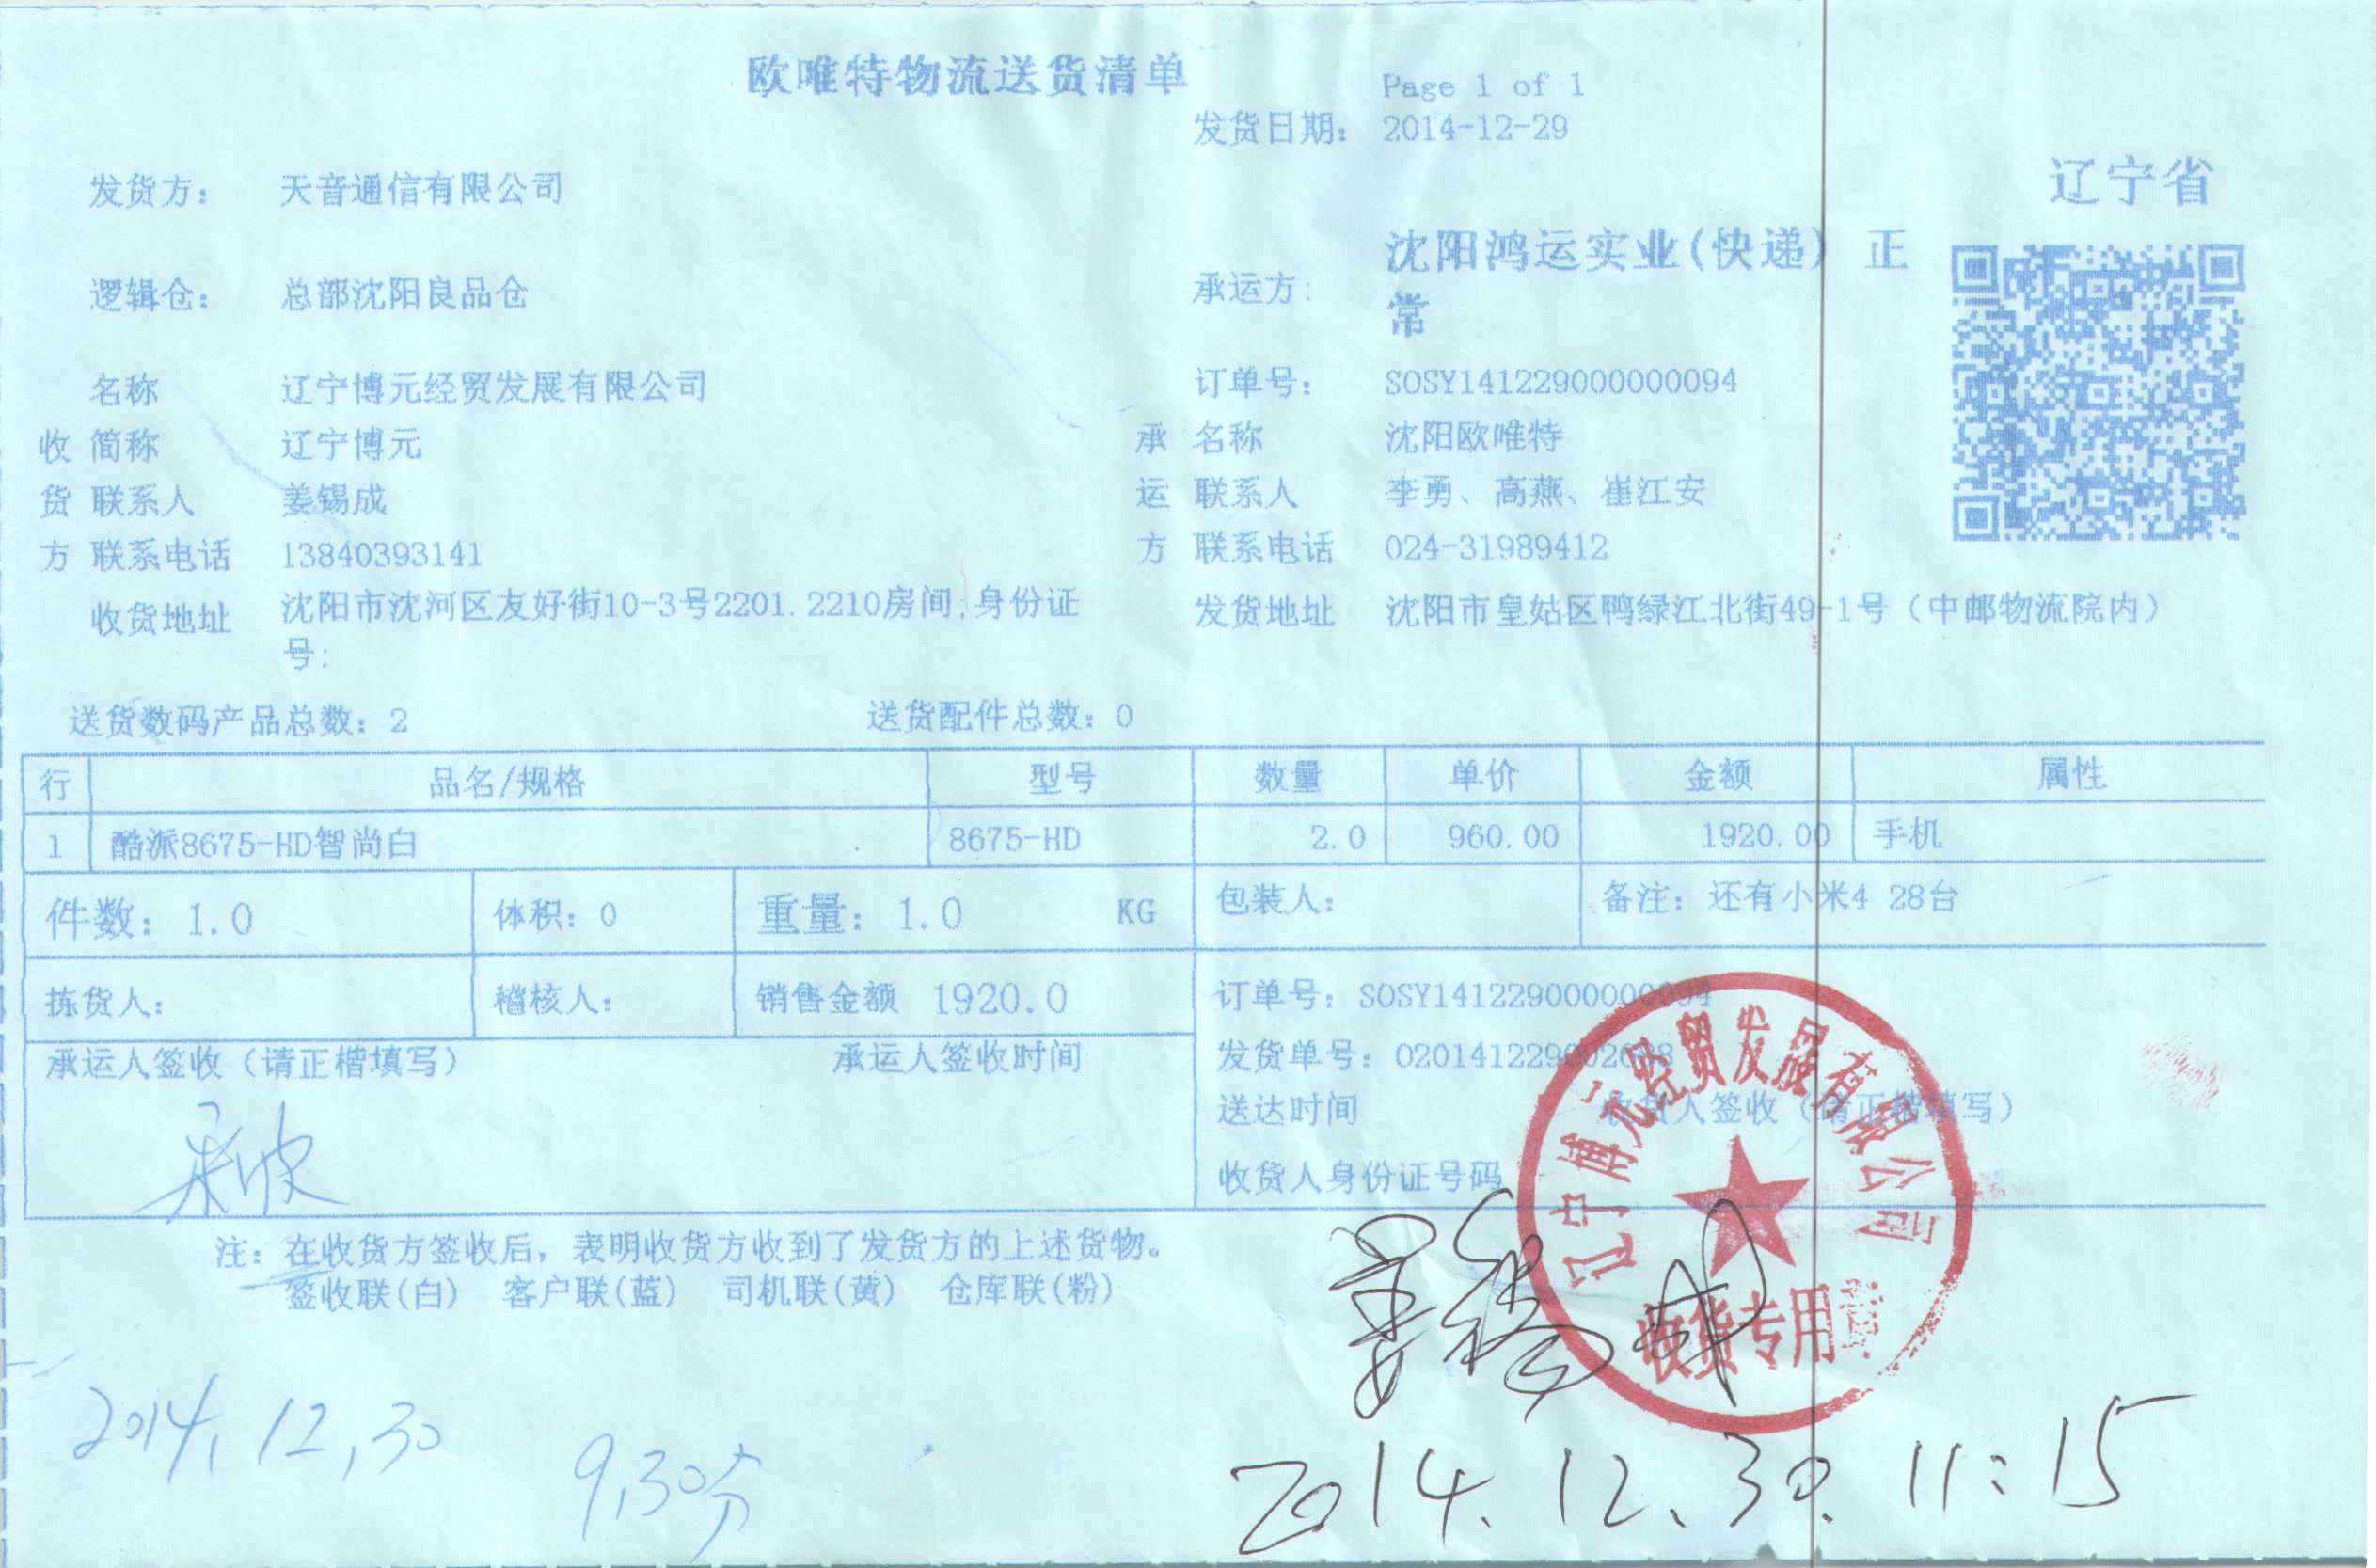 欧唯特物流送货清单
Page 1 of 1
发货日期: 2014-12-29
辽宁省
发货方: 天音通信有限公司
逻辑仓: 总部沈阳良品仓
承运方: 沈阳鸿运实业(快递) 正
常
名称 辽宁博元经贸发展有限公司
订单号: SOSY141229000000094
收 简称 辽宁博元
承 名称 沈阳欧唯特
货 联系人 姜锡成
运 联系人 李勇、高燕、崔江安
方 联系电话 13840393141
方 联系电话 024-31989412
收货地址 沈阳市沈河区友好街10-3号2201.2210房间;身份证
号:
发货地址 沈阳市皇姑区鸭绿江北街49-1号（中邮物流院内）
送货数码产品总数: 2 送货配件总数: 0
行 品名/规格 型号 数量 单价 金额 属性
1 酷派8675-HD智尚白 8675-HD 2.0 960.00 1920.00 手机
件数: 1.0 体积: 0 重量: 1.0 KG 包装人: 备注: 还有小米4 28台
拣货人: 稽核人: 销售金额 1920.0
订单号: SOSY141229000000094
承运人签收（请正楷填写） 承运人签收时间
发货单号:
送达时间 收货人签收（请正楷填写）
收货人身份证号码
辽宁博元经贸发展有限公司
收货专用章
注: 在收货方签收后，表明收货方收到了发货方的上述货物。
签收联(白) 客户联(蓝) 司机联(黄) 仓库联(粉)
姜锡成
2014.12.30
9.30分
2014.12.30. 11:15